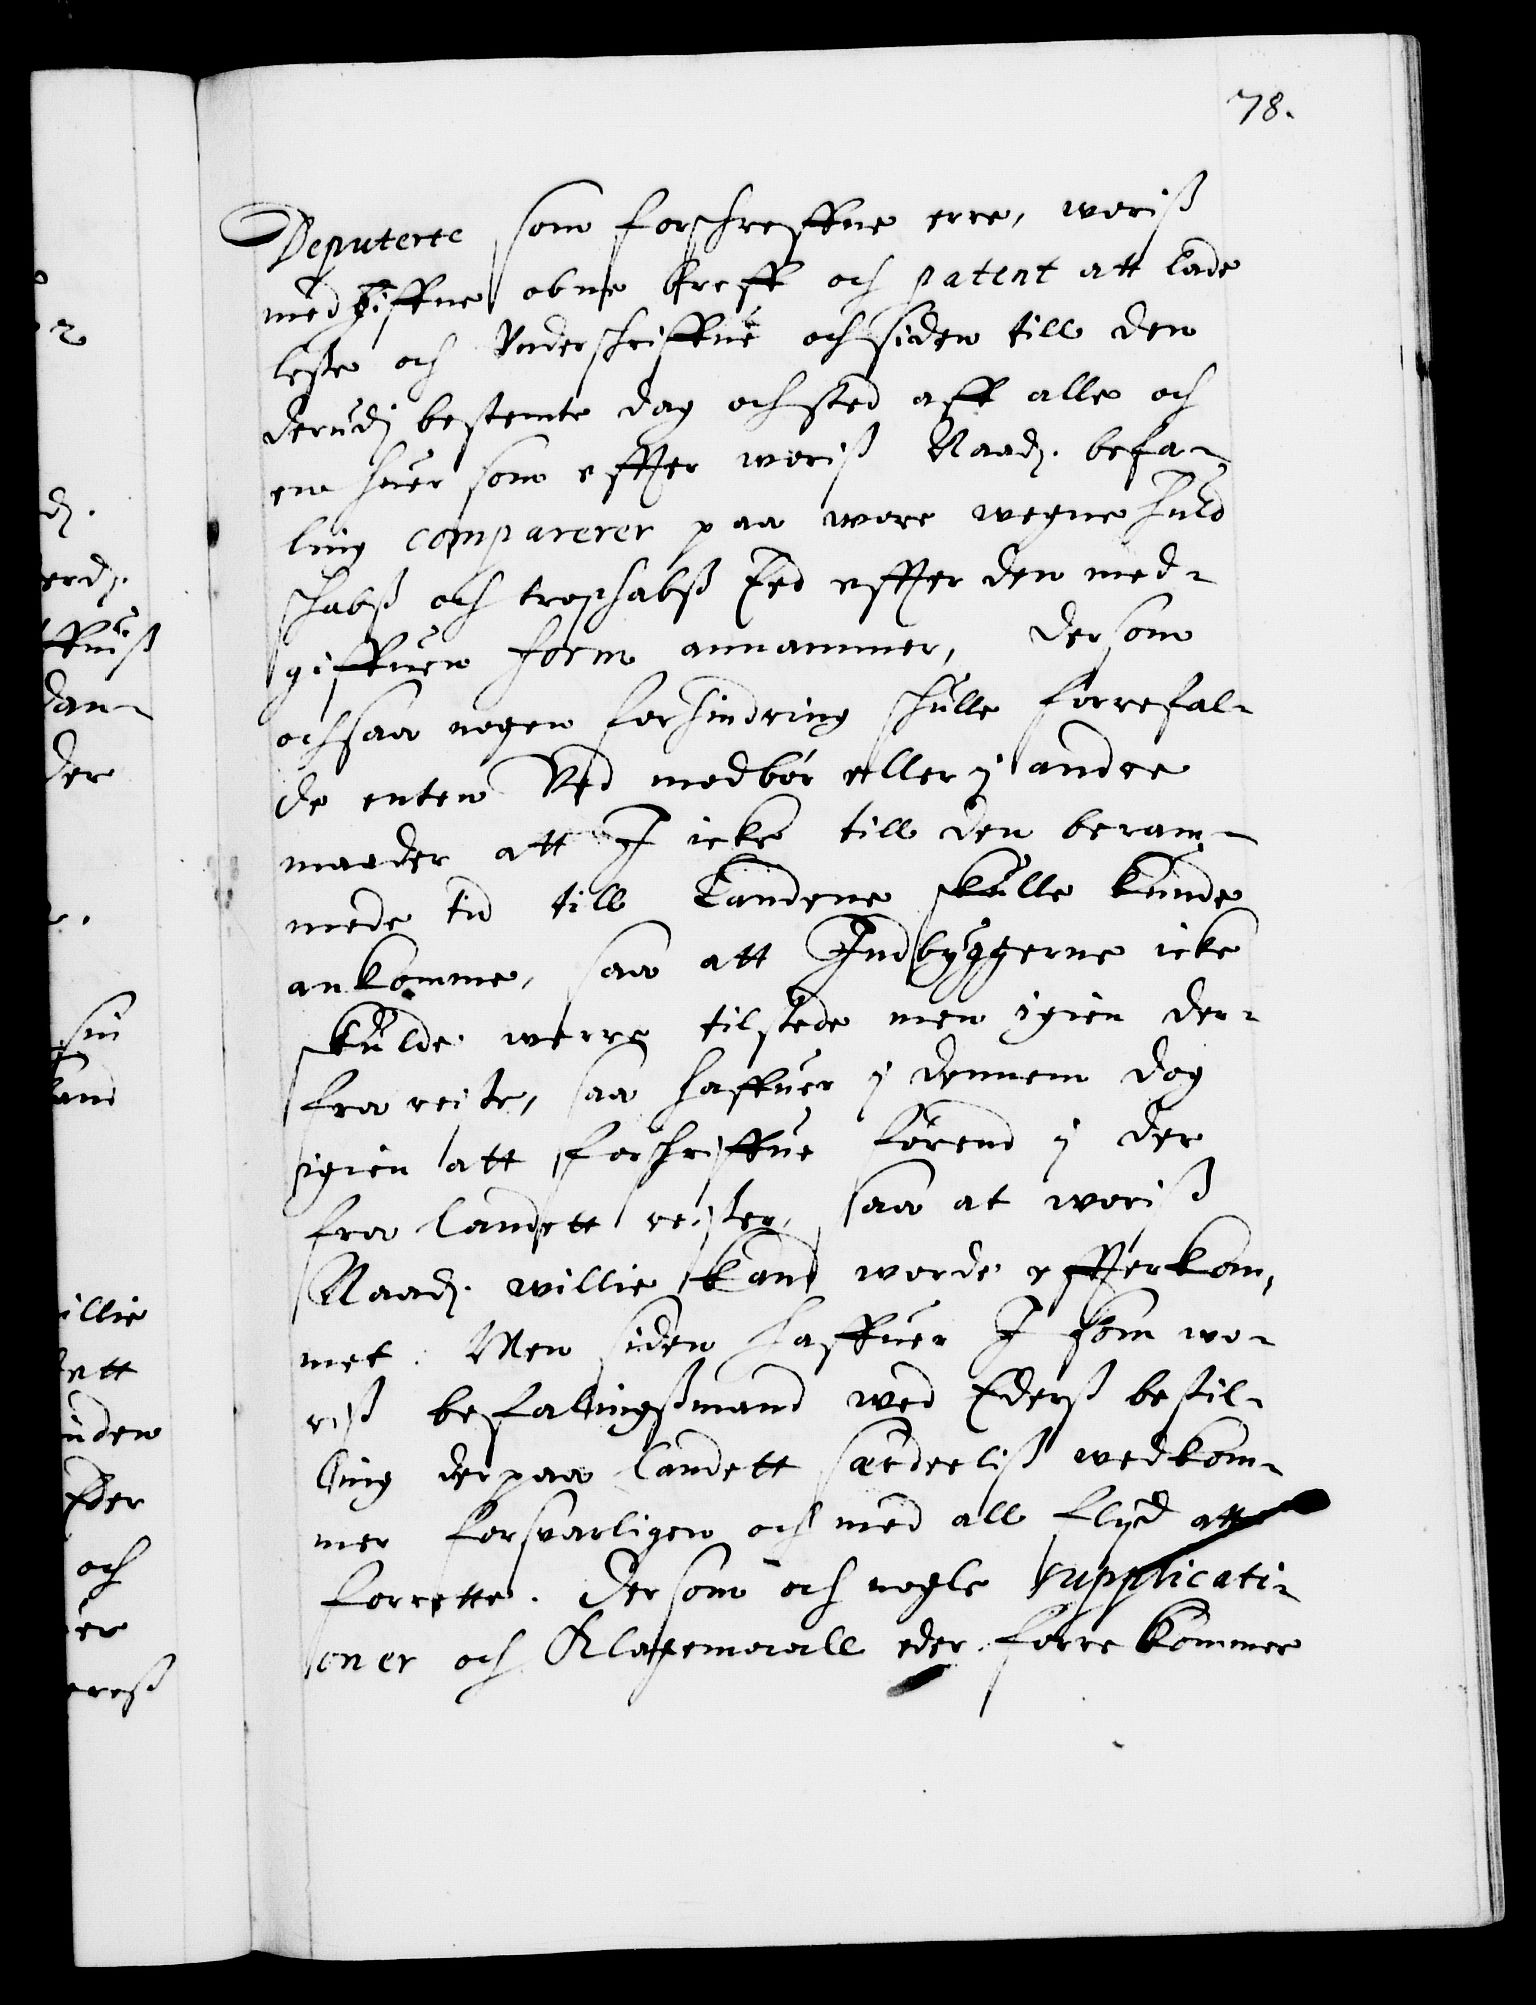 78.
Deputerte som forschreffne erre, woriß
med giffne obne breff och patent att lade
lesse och Vnderschriffue och siden till den
derudj bestemte dag och sted aff alle och
en huer som effter woriß Naadz. befa-
ling comparerer paa wore wegne huld
schabß och troschabß Eed effter den med-
giffuen form annammer, dersom
ochsaa nogen forhindring schulle forrefal-
de enten Ved modbör eller j andre
maader att I icke till den beram-
mede tid till Landene skulle kunde
ankomme, saa att Indbyggerne icke
skulde werre tilstede men igien der-
fra reiste, saa haffuer j dennem dog
igien att forschriffue förend j der
fra landett reiser, saa at woriß
Naadz. willie kand worde effterkom,
met. Men siden haffuer I som wo-
riß befalingßmand wed Ederß bestil-
ling der paa Landett særdeeliß wedkom-
mer forsvarligen och med all flijd att
forrette. Dersom och nogle supplicati-
oner och Klagemaall eder forre kommer